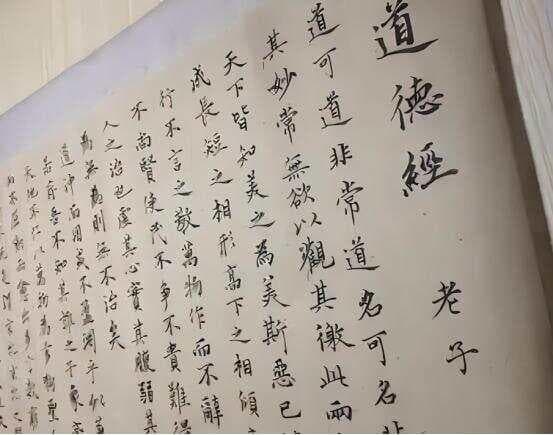 道德經
老子
道可道非常道名可名非
其妙常無欲以觀其徼此兩
天下皆知美之為美斯惡已
成長短之相形高下之相傾
行不言之教萬物作而不辭
不尚賢使民不爭不貴難得
人之治也虛其心實其腹弱其
為無為則無不治矣
道沖而用或不盈淵乎似萬
吾不知其誰之子象帝
天地不仁以萬物為芻狗聖